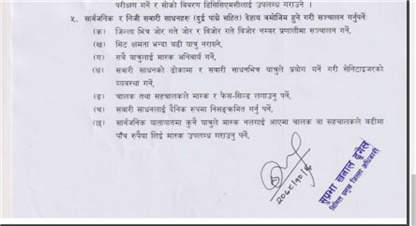 परीक्षण गर्ने र सोको विवरण डिसिसिएमसीलाई उपलब्ध गराउने ।
५. सार्वजनिक र निजी सवारी साधनहरू (दुई पांग्रे सहित) देहाय बमोजिम हुने गरी सञ्चालन गर्नुपर्नेः
(क) जिल्ला भित्र जोर गते जोर र विजोर गते विजोर नम्बर प्रणालीमा सञ्चालन गर्ने,
(ख) सिट क्षमता भन्दा बढी यात्रु नराख्ने,
(ग) सबै यात्रुलाई मास्क अनिवार्य,
(घ) सवारी साधनको ढोकामा र सवारी साधनभित्र यात्रुले प्रयोग गर्ने गरी सेनिटाइजरको
व्यवस्था गर्ने,
(ङ) चालक तथा सहचालकले मास्क र फेस-सिल्ड लगाउनु पर्ने,
(च) सवारी साधनलाई दैनिक रुपमा निसङ्क्रमित गर्नु पर्ने,
(छ) सार्वजनिक यातायातमा कुनै यात्रुले मास्क नलगाई आएमा चालक वा सहचालकले बढीमा
पाँच रुपैया लिई मास्क उपलब्ध गराउनु पर्ने,
२०७८/१०/६
सुप्रभा खनाल
निमित्त प्रमुख जिल्ला अधिकारी